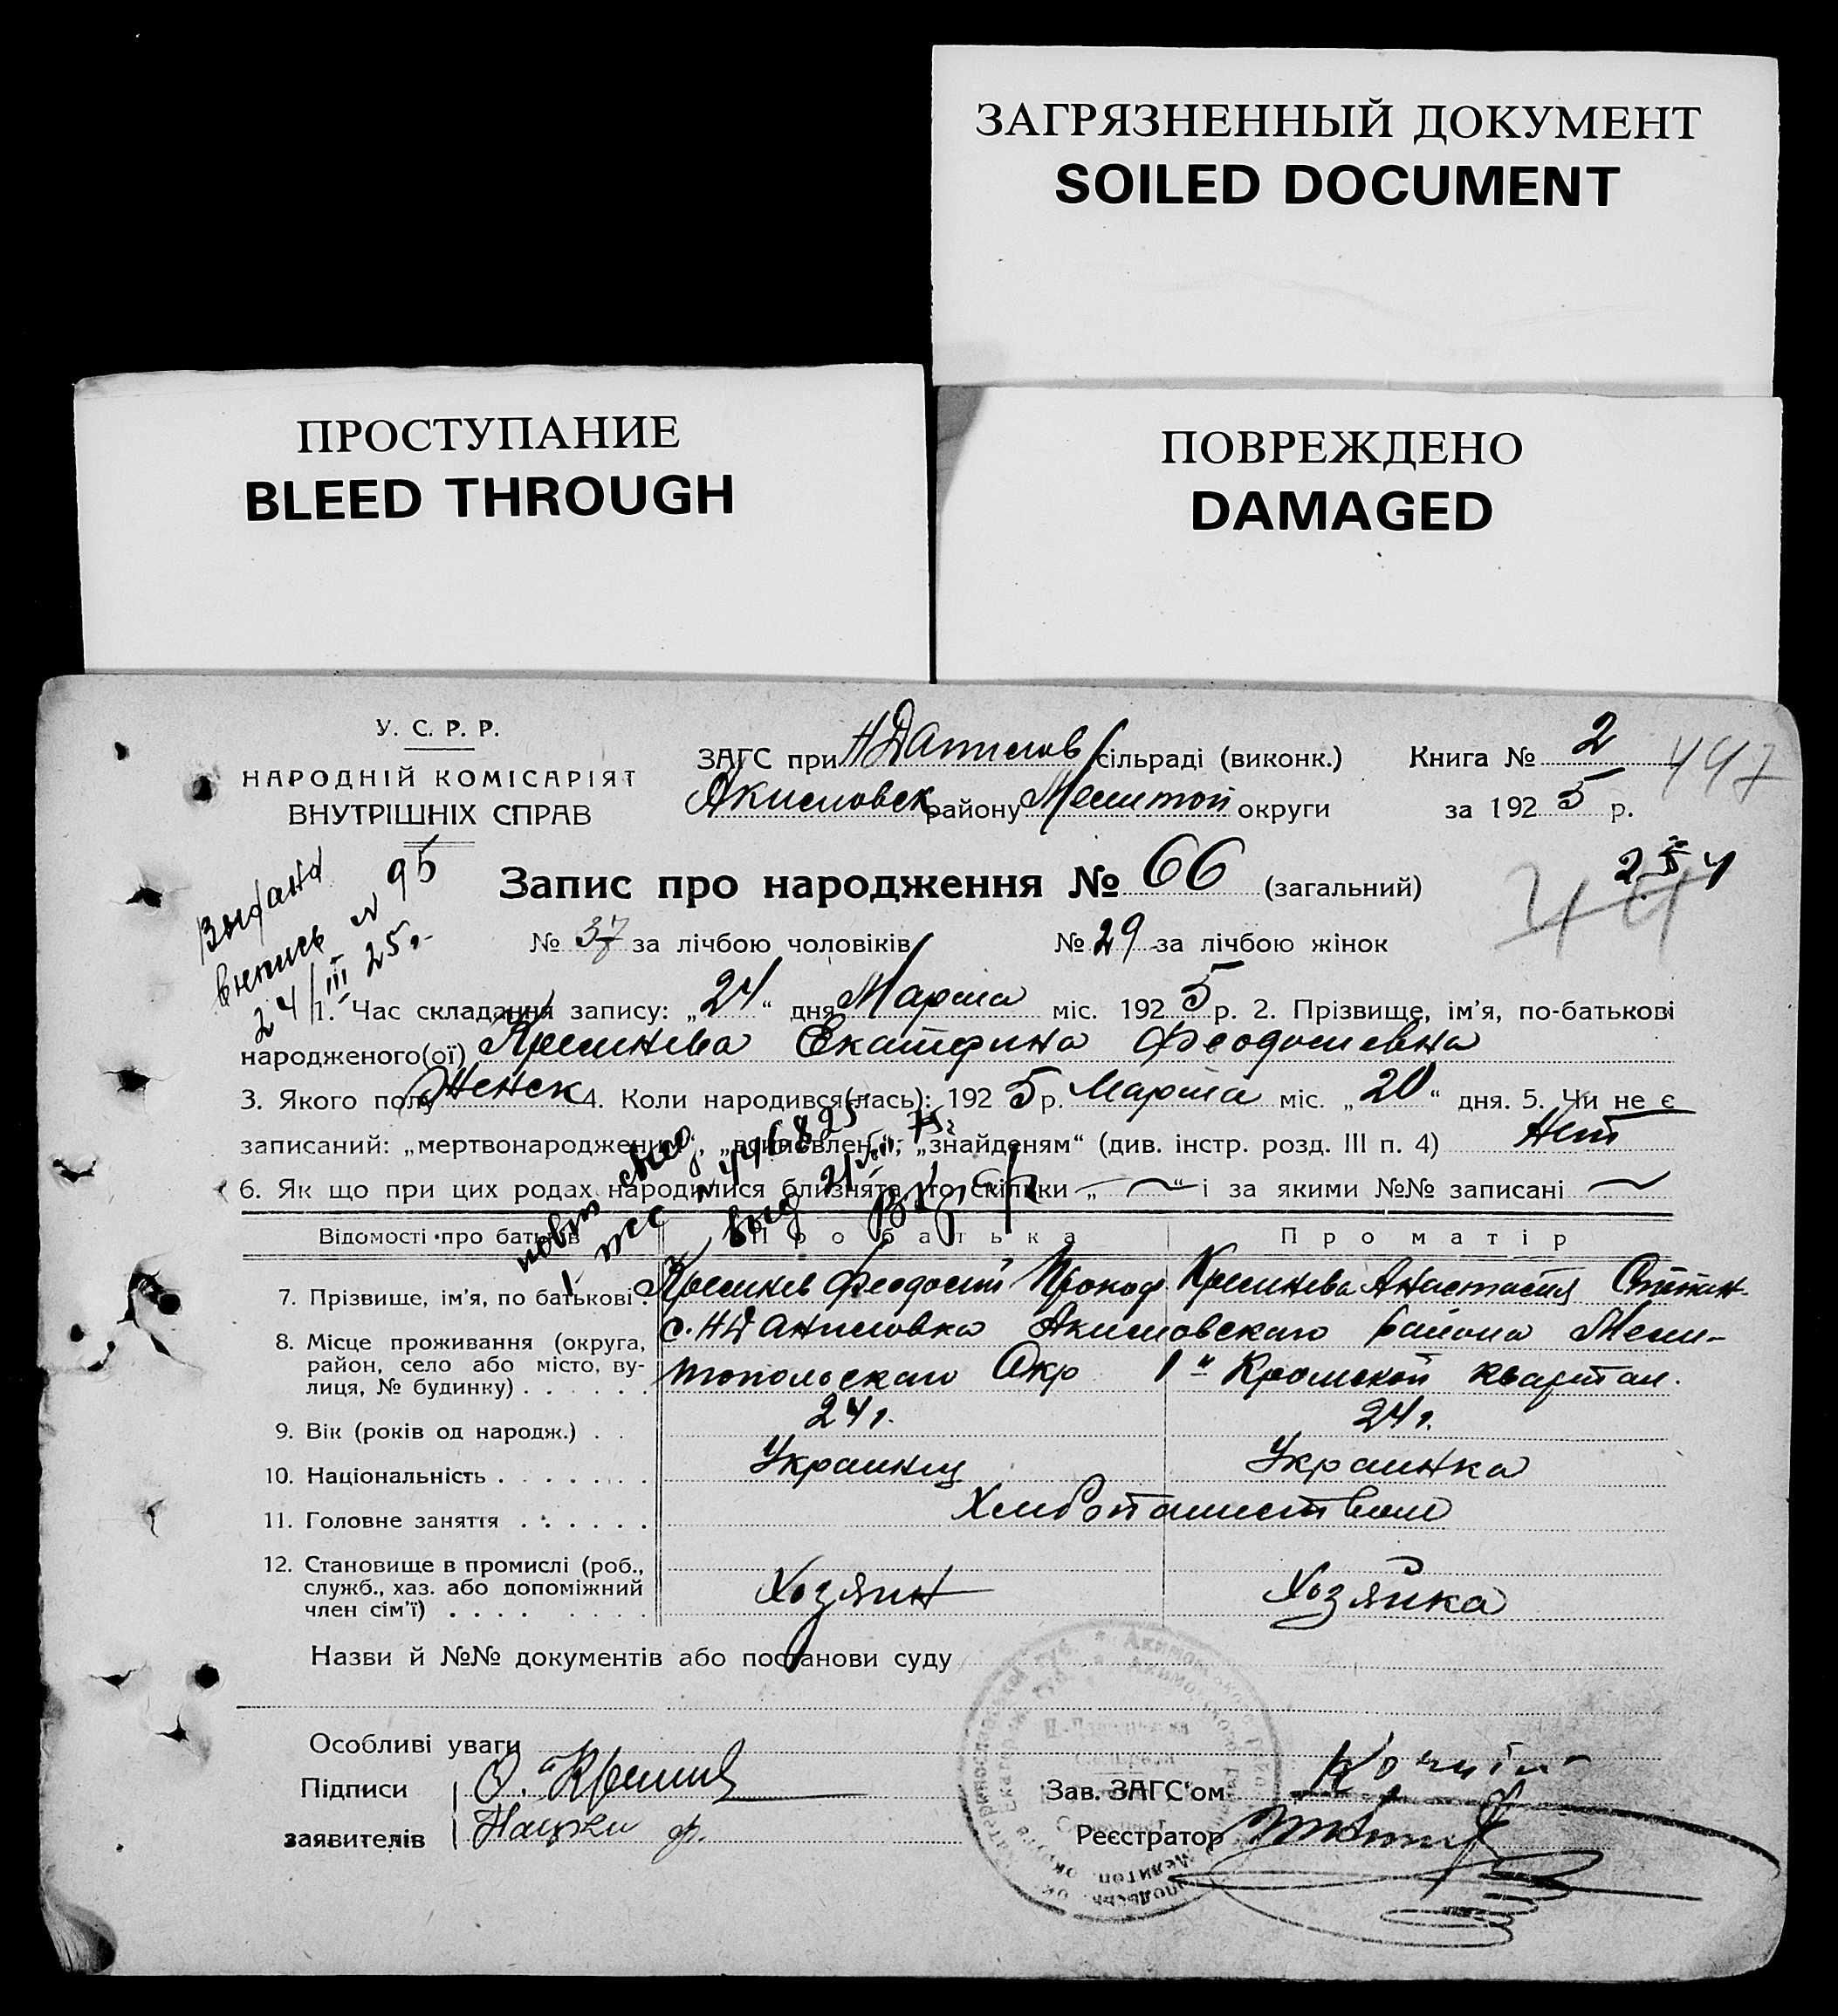 ЗАГРЯЗНЕННЫЙ ДОКУМЕНТ
SOILED DOCUMENT
ПРОСТУПАНИЕ
BLEED THROUGH
ПОВРЕЖДЕНО
DAMAGED
У. С. Р. Р.
НАРОДНІЙ КОМІСАРІЯТ
ВНУТРІШНІХ СПРАВ
ЗАГС при Н Данилов сільраді (виконк.) Книга № 2
447
Акимовск району Мелитоп округи за 1925 р.
Запис про народження № 66 (загальний)
254
44
№ 37 за лічбою чоловіків № 29 за лічбою жінок
Выдана
выпись № 95
24/III 25 г.
1. Час складання запису: „24“ дня Марта міс. 1925 р. 2. Прізвище, ім'я, по-батькові
народженого(ої) Екатерина Феодосиевна
3. Якого полу Женск 4. Коли народився(лась): 1925 р. Марта міс. „20“ дня. 5. Чи не є
записаний: „мертвонародженим“, „знайденям“ (див. інстр. розд. III п. 4) Нет
6. Як що при цих родах народилися близнята, то скільки „ “ і за якими №№ записані
повт свид
Відомості про батьків Про батька Про матір
7. Прізвище, ім'я, по батькові Феодосий Прокоф Анастасия Степан.
8. Місце проживання (округа, район, село або місто, вулиця, № будинку) с. Н Даниловка Акимовскаго района Мели-
топольскаго Окр 1й Кромской квартал.
9. Вік (років од народж.) 24 г. 24 г.
10. Національність Украинец Украинка
11. Головне заняття Хлебопашеством
12. Становище в промислі (роб., служб., хаз. або допоміжний член сім'ї) Хозяин Хозяйка
Назви й №№ документів або постанови суду
Особливі уваги
Підписи
заявителів
Зав. ЗАГС'ом
Реєстратор